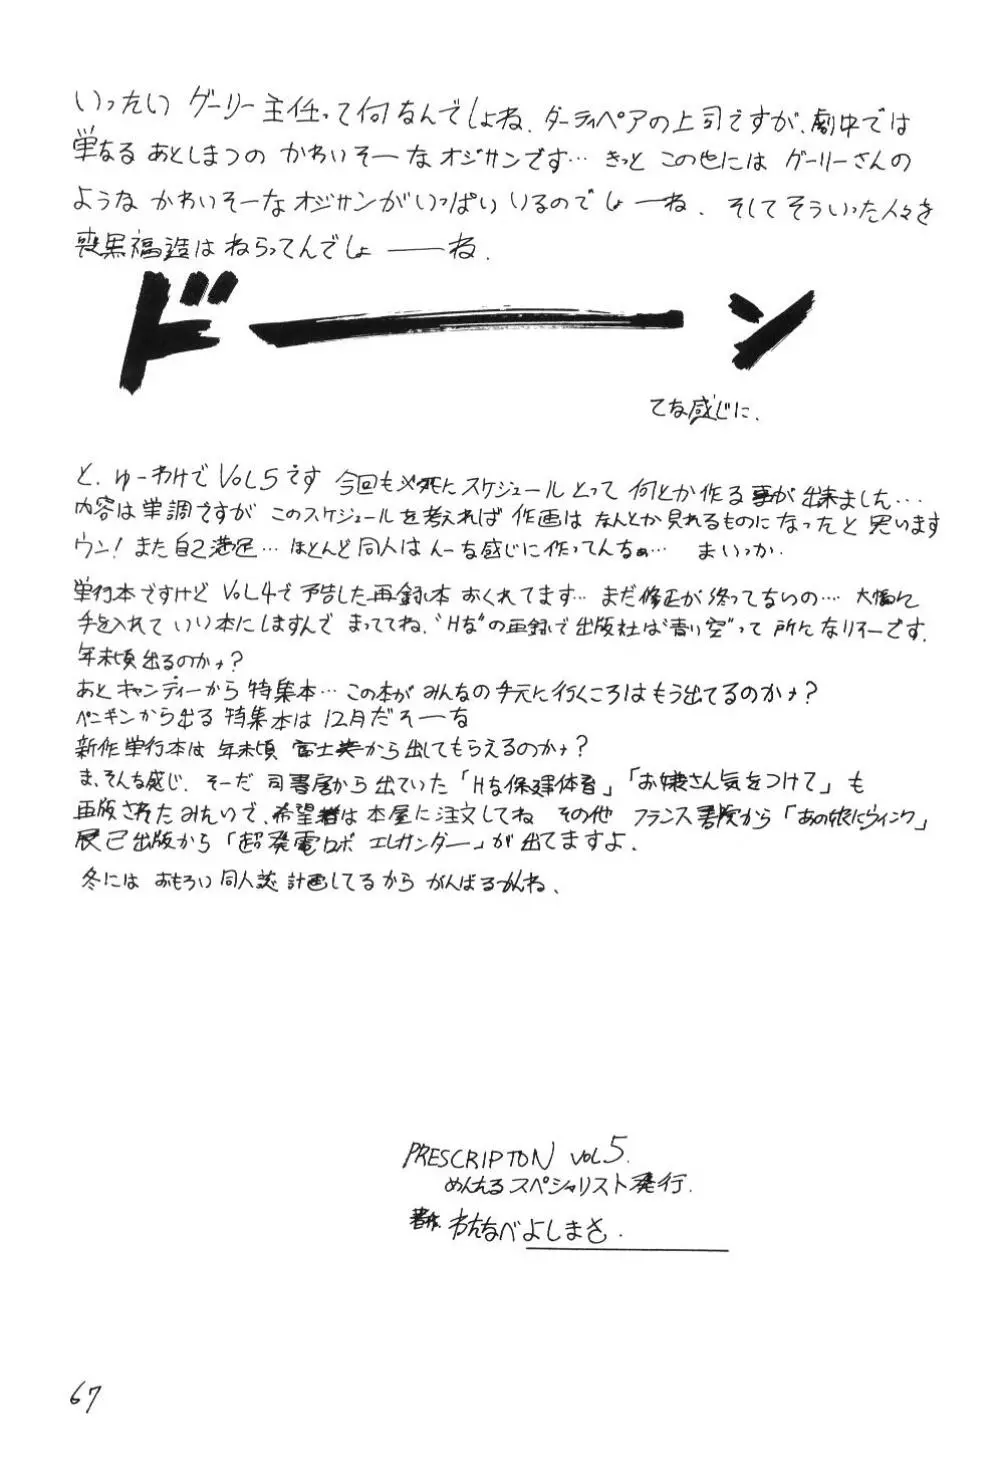 いったい グーリー主任って何なんでしょね、ダーティペアの上司ですが、劇中では
単なる あとしまつの かわいそーな オジサンです… きっと この世には グーリーさんの
ような かわいそーな オジサンが いっぱい いるのでしょーね、そして そういった人々を
喪黒福造は ねらってんでしょ——ね.
ドーン
てな感じに、
と、ゆーわけで VOL5です 今回も必死に スケジュール とって 何とか作る事が出来ました…
内容は単調ですが このスケジュールを考えれば 作画は なんとか見れるものになったと思います
ウン！また自己満足… ほとんど同人は んーな感じに作ってんなぁ… まいっか.
単行本ですけど VOL4で予告した再録本 おくれてます… まだ修正が終ってないの… 大幅に
手を入れて いい本にしますんで まっててね、"Hな"の再録で出版社は"青い空"って所になりそーです.
年末頃出るのかナ？
あと キャンディーから 特集本… この本が みんなの手元に行くころはもう出てるのかナ？
ペンギンから出る 特集本は 12月だそーな
新作単行本は 年末頃 富士美から出してもらえるのかナ？
ま、そんな感じ. そーだ 司書房から出ていた「Hな保健体育」「お嬢さん気をつけて」も
再版されたみたいで、希望者は本屋に注文してね その他 フランス書院から「あの娘にウィンク」
辰己出版から「超発電ロボ エレサンダー」が出てますよ.
冬には おもろい同人誌 計画してるから がんばるかんね、
PRESCRIPTON VOL5.
めんたるスペシャリスト発行.
著作. わたなべよしまさ.
67